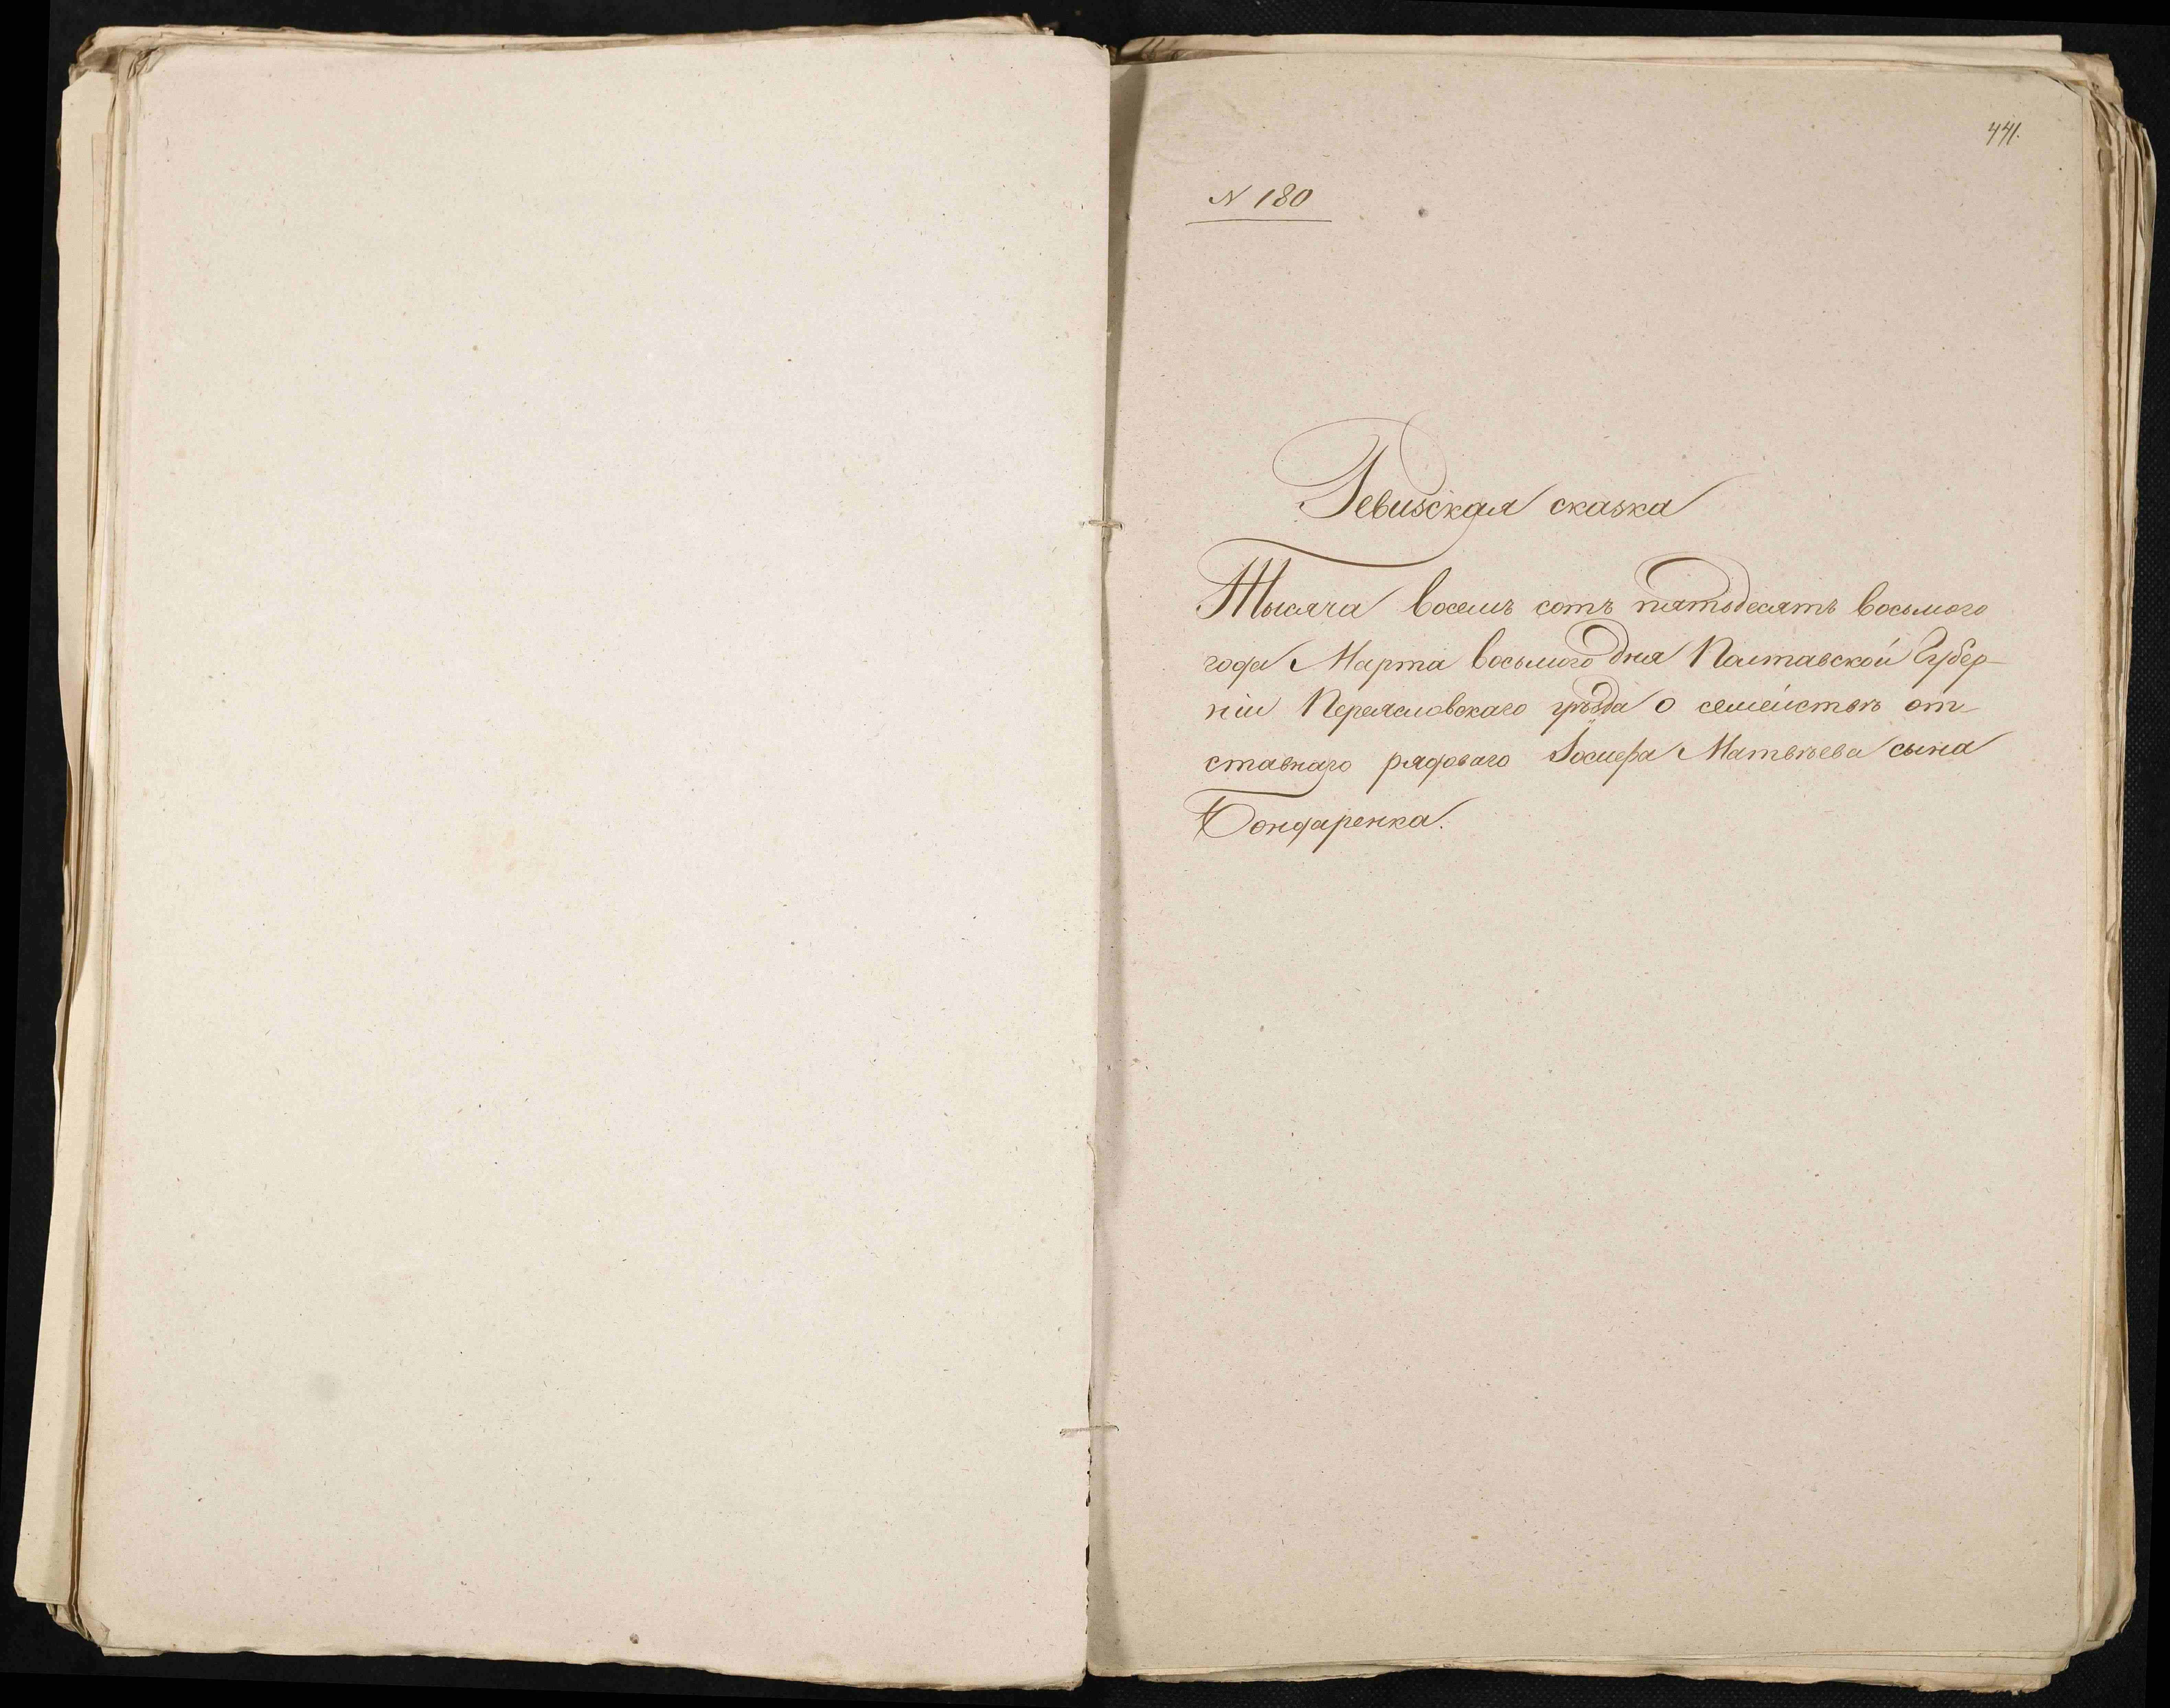 441.
N 180
Ревизская сказка
Тысяча восемь сотъ пятьдесятъ восьмого
года Марта восьмого дня Полтавской Губер-
ніи Переясловскаго уѣзда о семействѣ от-
ставнаго рядоваго Іосифа Матвѣева сына
Бондаренка.